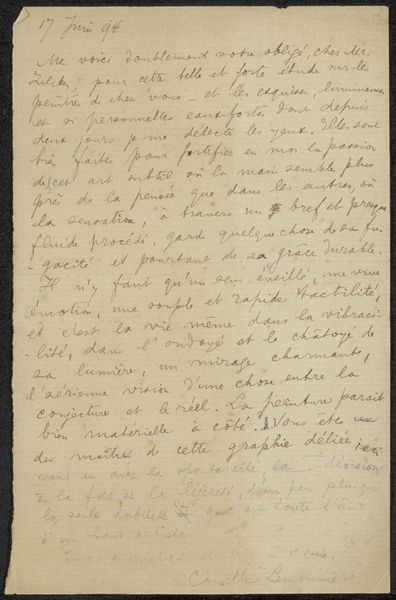 17 Juin 94
Me voici doublement votre obligé, cher Mr.
Zilcken – pour cette belle et forte étude sur les
peintres de chez vous – et les exquises, lumineuses
et si personnelles eauxfortes dont depuis
deux jours je me délecte les yeux. Elles sont
bien faites pour fortifier en moi la passion
de cet art subtil où la main semble plus
près de la pensée que dans les autres, où
la sensation, à travers un bref et presque
fluide procédé, garde quelque chose de sa fu-
gacité et pourtant de sa grâce durable.
Il n'y faut qu'un sens éveillé, une vive
émotion, une souple et rapide tactilité,
et c'est la vie même dans la vibraci-
lité, dans l'ondoyé et le châtoyé de
sa lumière, un mirage charmant,
l'aérienne vision d'une chose entre la
conjecture et le réel. La peinture parait
bien materielle à côté. Vous etes un
des maîtres de cette graphie déliée
vous en avez la spontanéité, la décision
à la fois et la légèreté, un peu plus que
la seule habileté qui est toute
d'un haut artiste.
à vous.
Camille Lemonnier